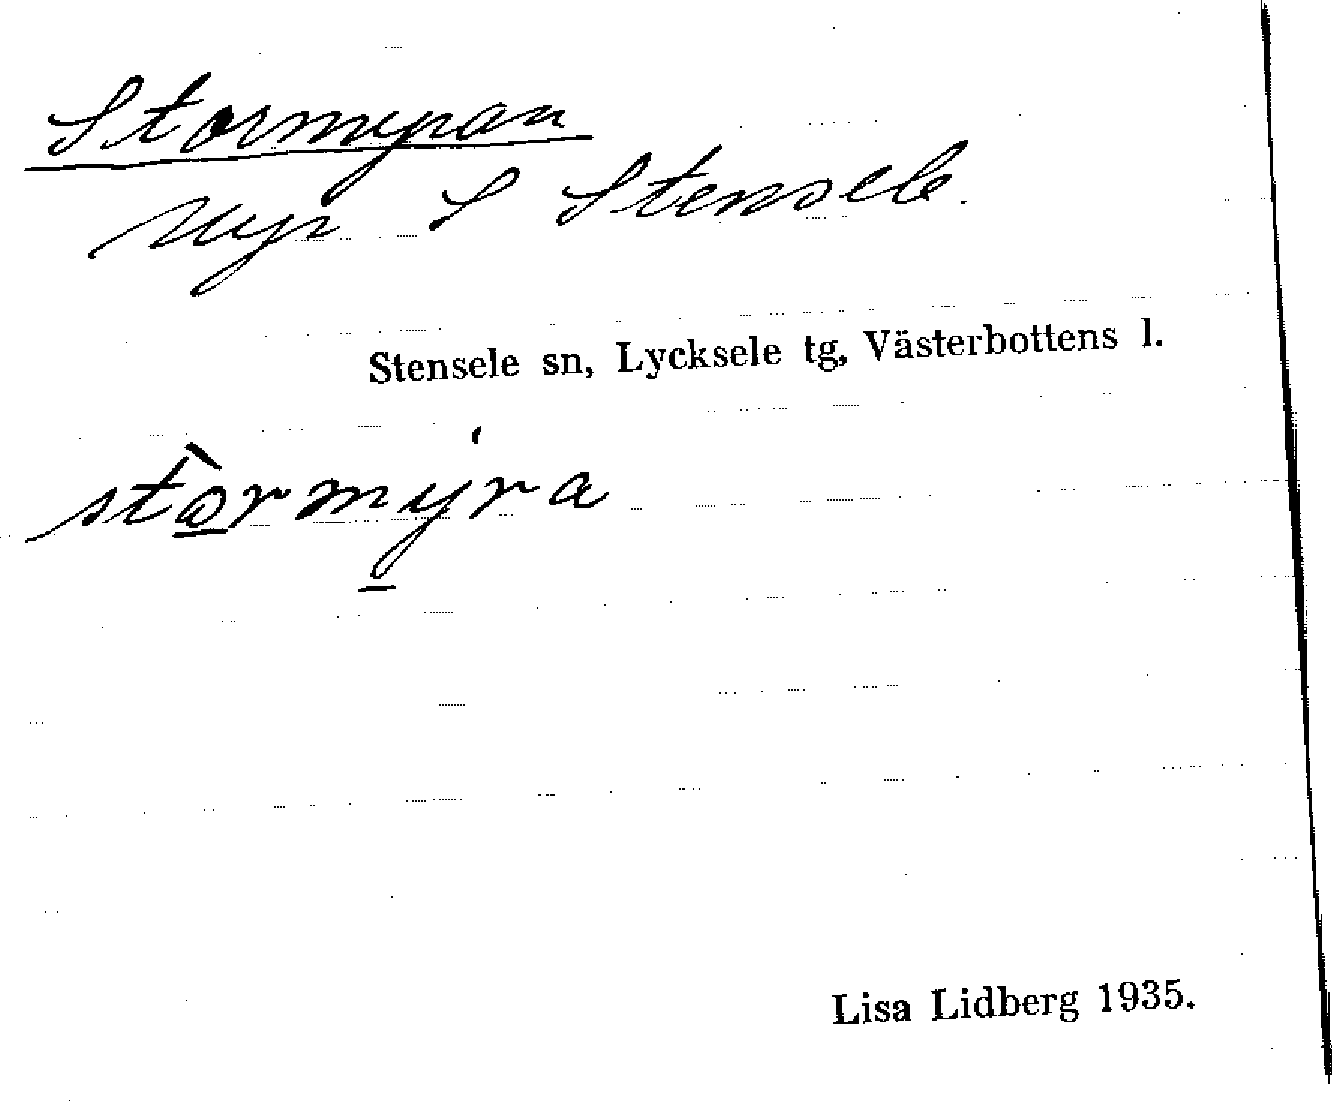 Stormyran
Myr S Stensele.
Stensele sn, Lycksele tg, Västerbottens l.
stò̲rmý̲ra
Lisa Lidberg 1935.